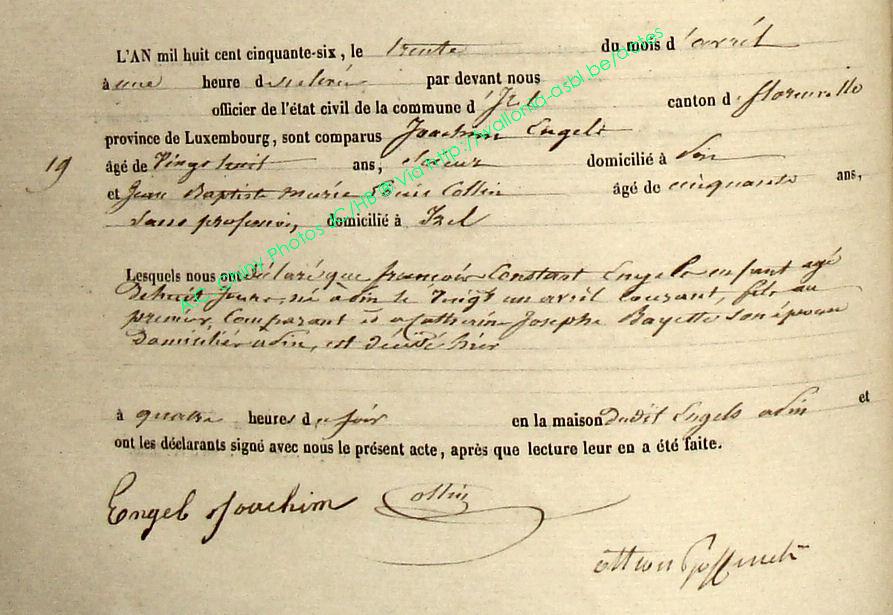 L'AN mil huit cent cinquante-six, le trente du mois d'avril
à une heure de relevée par devant nous
officier de l'état civil de la commune d'Izel canton de florenville
province de Luxembourg, sont comparus Joachim Engels
19 âgé de vingt huit ans, domicilié à
et Jean Baptiste Marie Collin âgé de cinquante ans,
sans profession, domicilié à Izel
Lesquels nous ont déclaré que françois Constant Engels enfant agé
de huit jours, né à le vingt un avril courant, fils au
premier Comparant et a Catherine Josephe Bayette son épouse
domiciliés, est décédé hier
à quatre heures du soir en la maison dudit Engels et
ont les déclarants signé avec nous le présent acte, après que lecture leur en a été faite.
Engels Joachim Collin
A.C. Chiny Photos JC/HB @ Via http://wallonia-asbl.be/actes